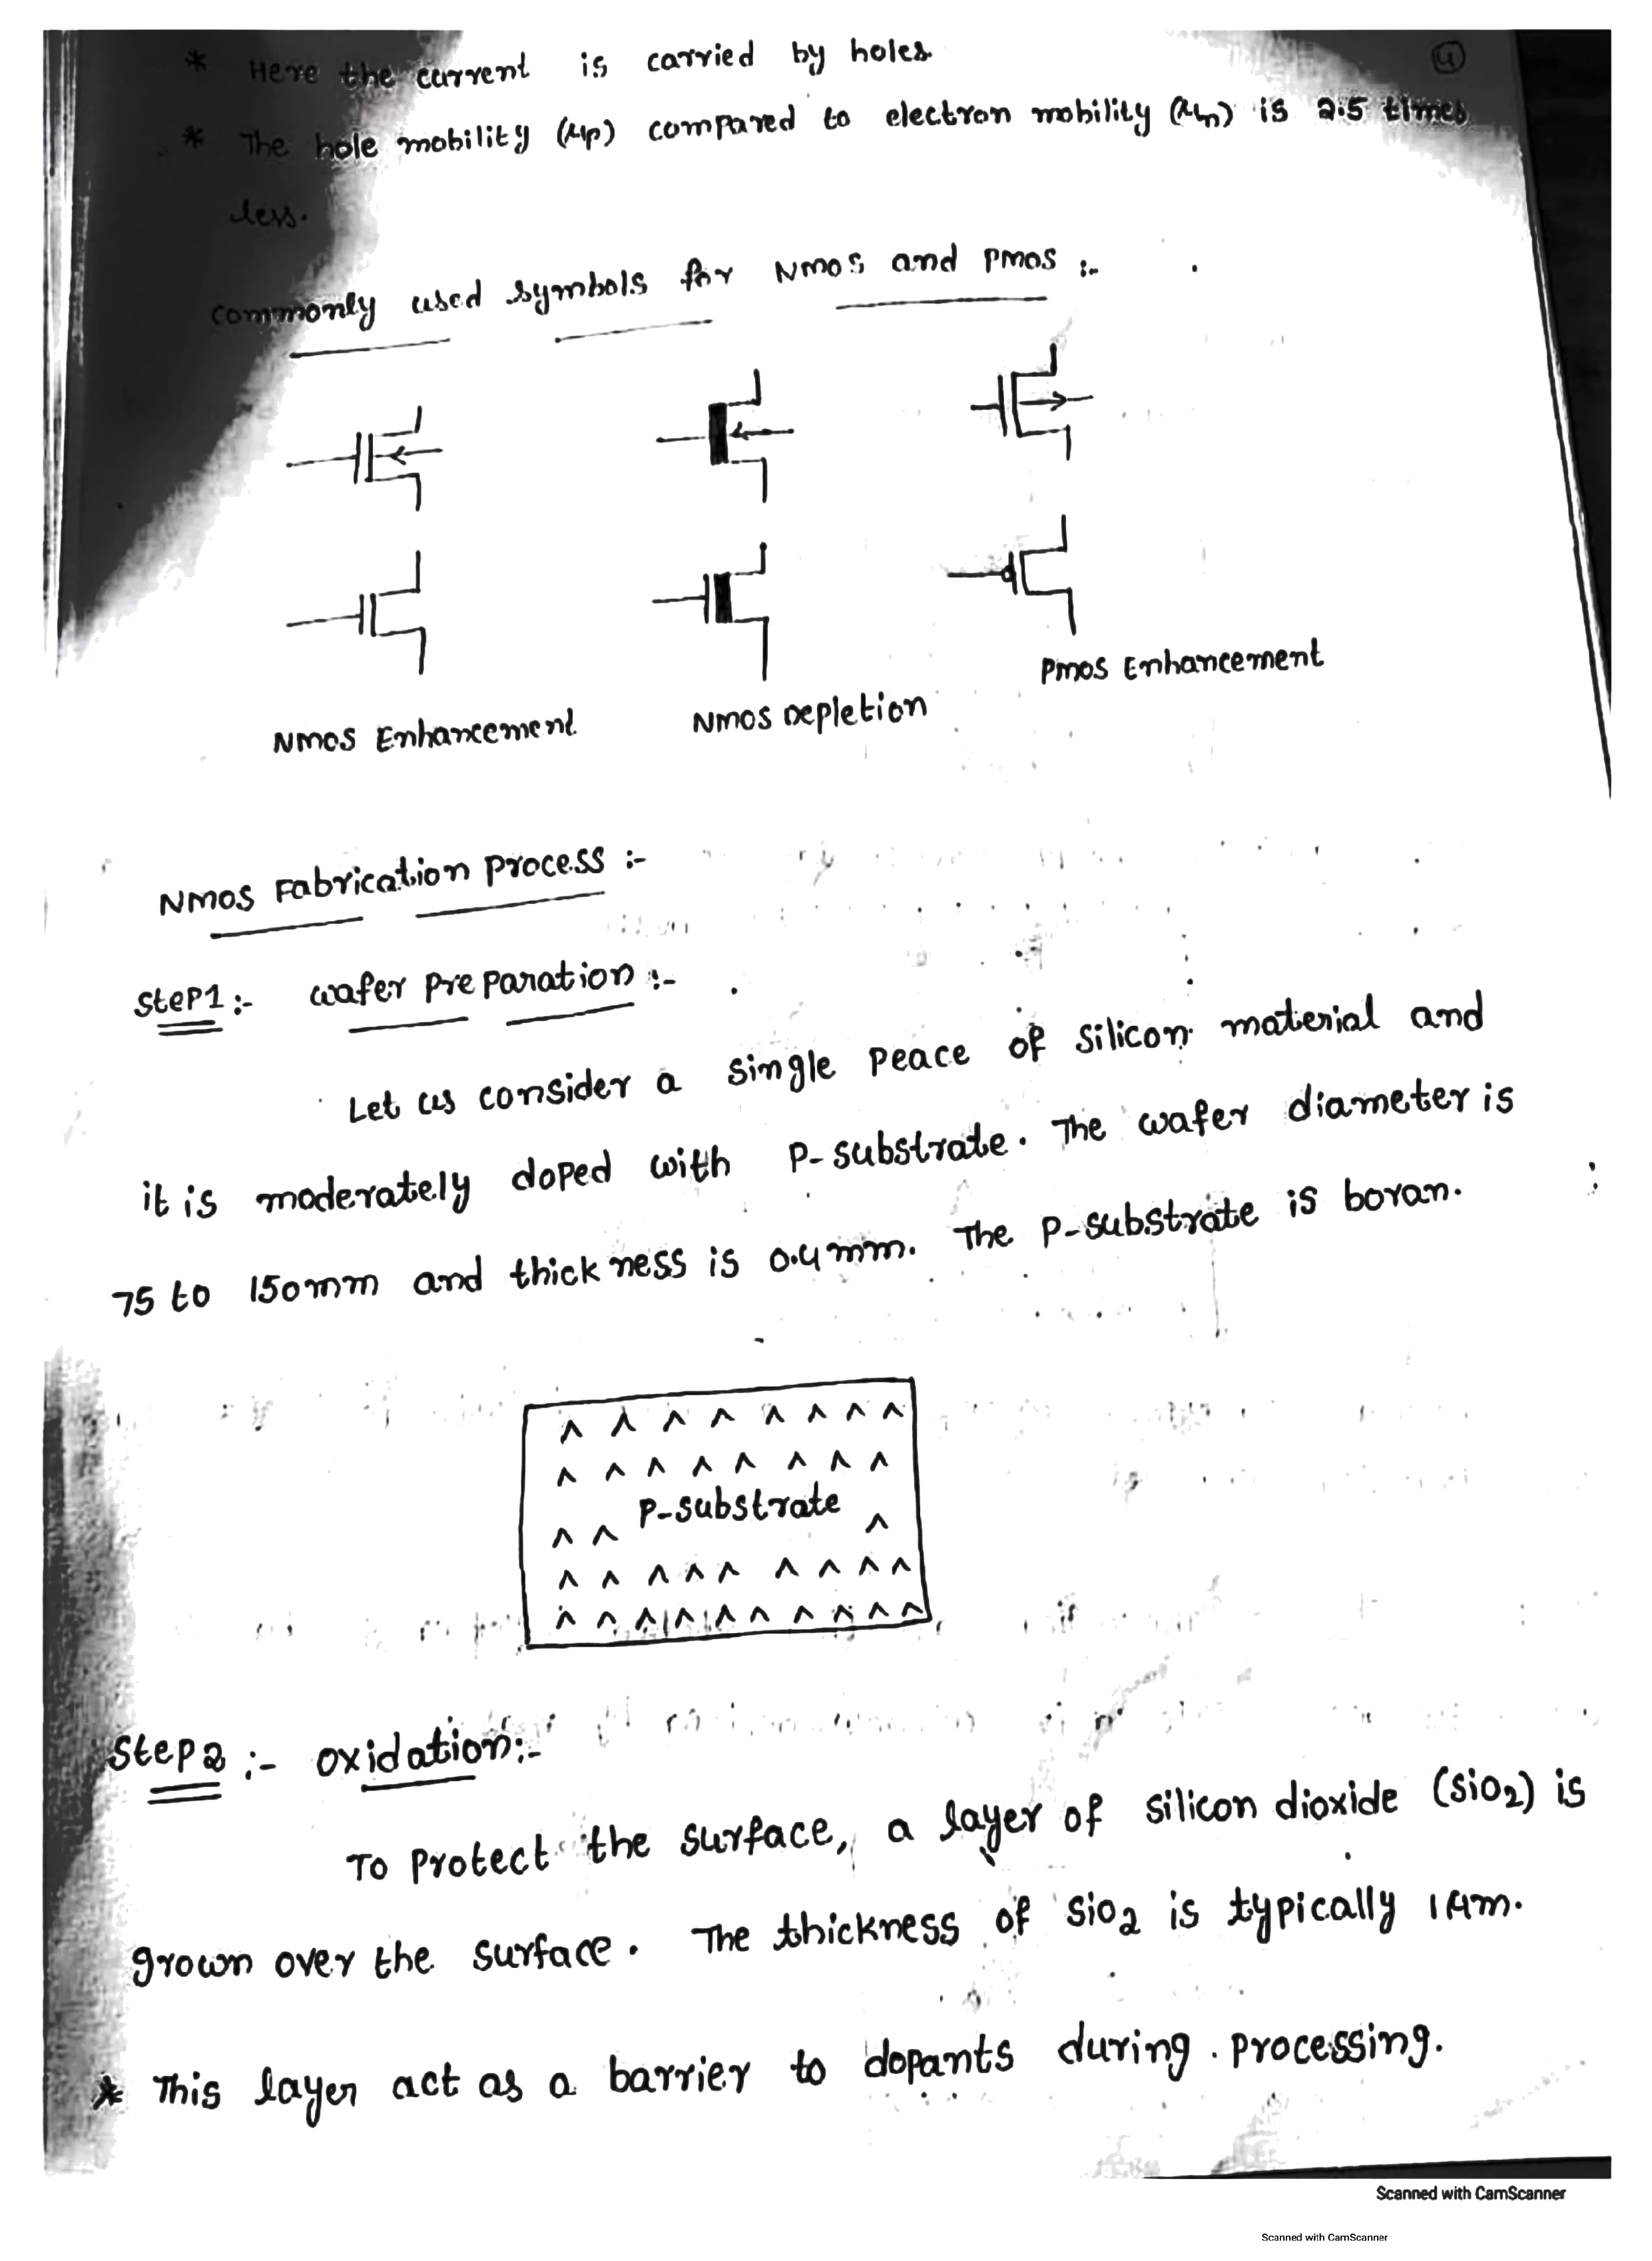 * Here the current is carried by holes.
4
* The hole mobility (μp) compared to electron mobility (μn) is 2.5 times
less.
commonly used symbols for NMOS and PMOS :-
NMOS Enhancement
NMOS Depletion
PMOS Enhancement
NMOS Fabrication Process :-
Step1 :- wafer preparation :-
Let us consider a single peace of silicon material and
it is moderately doped with P-substrate. The wafer diameter is
75 to 150mm and thickness is 0.4mm. The P-substrate is boran.
P-substrate
Step2 :- Oxidation :-
To protect the surface, a layer of silicon dioxide (SiO2) is
grown over the surface. The thickness of SiO2 is typically 1μm.
* This layer act as a barrier to dopants during processing.
Scanned with CamScanner
Scanned with CamScanner